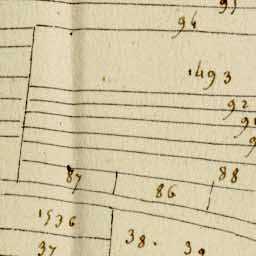 95
94
1493
92
91
87 86 88
1536
37 38.